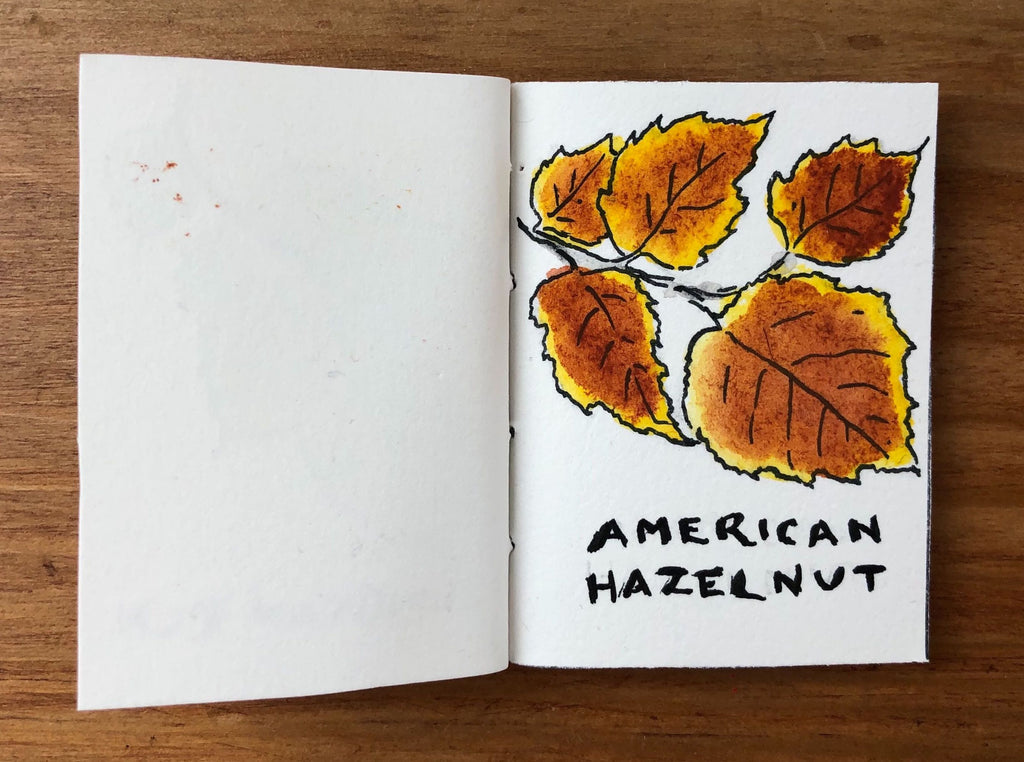 AMERICAN
HAZELNUT